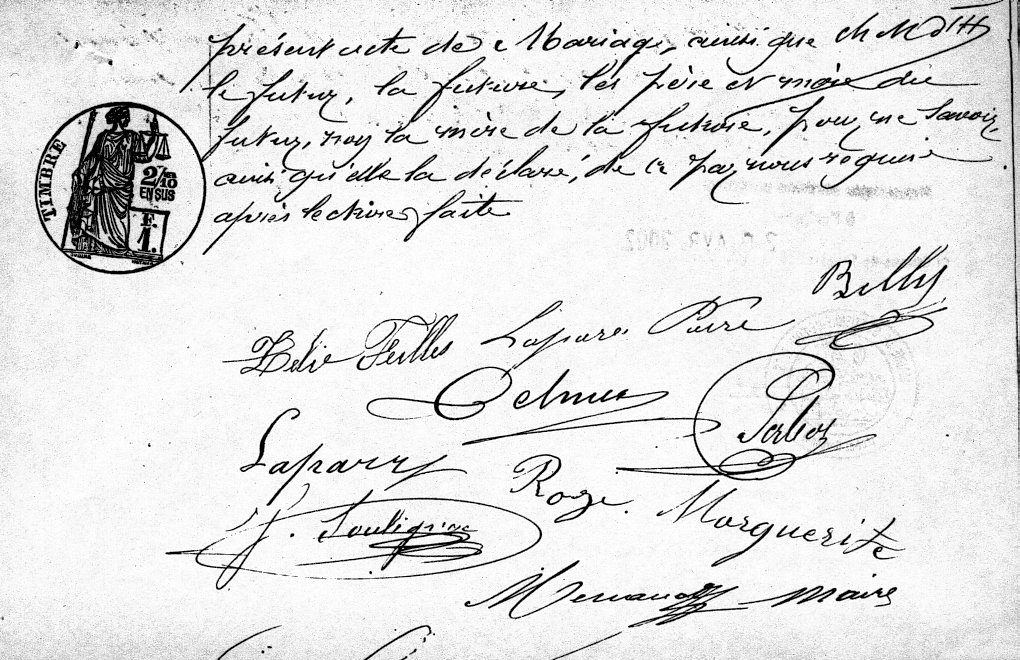 présent acte de Mariage, ainsi que
le futur, la future, les père et mère du
futur, non la mère de la future, pour ne savoir,
ainsi qu'elle la déclaré, de ce par nous requise
après lecture faite
TIMBRE
2/10 EN SUS
F. 1.
AVR. 2002
Billy
Zélie Feilles Laparre Pierre
Delmas
Laparre Roge Marguerite
Maire